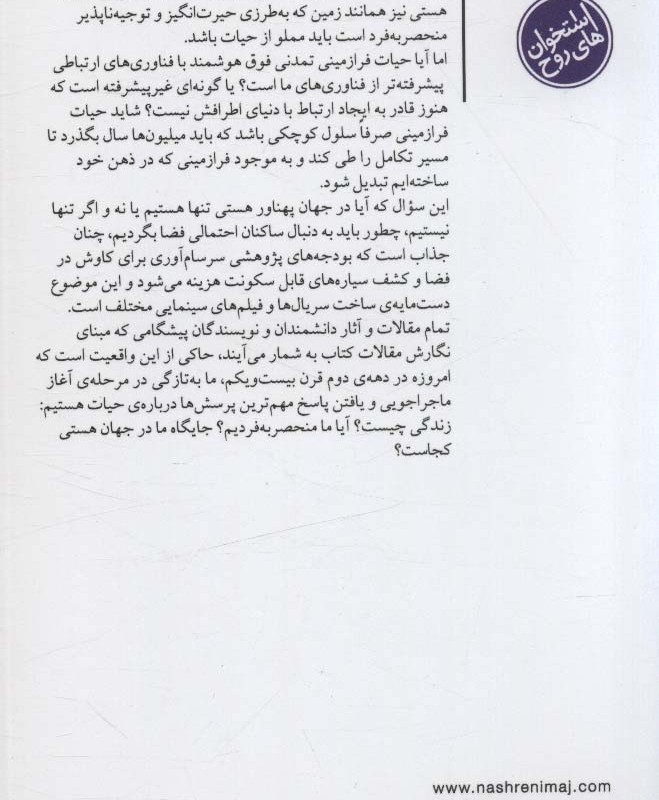 هستی نیز همانند زمین که به‌طرزی حیرت‌انگیز و توجیه‌ناپذیر
منحصربه‌فرد است باید مملو از حیات باشد.
اما آیا حیات فرازمینی تمدنی فوق هوشمند با فناوری‌های ارتباطی
پیشرفته‌تر از فناوری‌های ما است؟ یا گونه‌ای غیرپیشرفته است که
هنوز قادر به ایجاد ارتباط با دنیای اطرافش نیست؟ شاید حیات
فرازمینی صرفاً سلول کوچکی باشد که باید میلیون‌ها سال بگذرد تا
مسیر تکامل را طی کند و به موجود فرازمینی که در ذهن خود
ساخته‌ایم تبدیل شود.
این سؤال که آیا در جهان پهناور هستی تنها هستیم یا نه و اگر تنها
نیستیم، چطور باید به دنبال ساکنان احتمالی فضا بگردیم، چنان
جذاب است که بودجه‌های پژوهشی سرسام‌آوری برای کاوش در
فضا و کشف سیاره‌های قابل سکونت هزینه می‌شود و این موضوع
دست‌مایه‌ی ساخت سریال‌ها و فیلم‌های سینمایی مختلف است.
تمام مقالات و آثار دانشمندان و نویسندگان پیشگامی که مبنای
نگارش مقالات کتاب به شمار می‌آیند، حاکی از این واقعیت است که
امروزه در دهه‌ی دوم قرن بیست‌ویکم، ما به‌تازگی در مرحله‌ی آغاز
ماجراجویی و یافتن پاسخ مهم‌ترین پرسش‌ها درباره‌ی حیات هستیم:
زندگی چیست؟ آیا ما منحصربه‌فردیم؟ جایگاه ما در جهان هستی
کجاست؟
استخوان
های روح
www.nashrenimaj.com